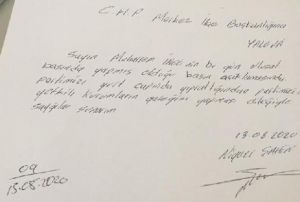 C.H.P Merkez İlçe Başkanlığına
YALOVA
Sayın Muharrem İNCE'nin bir gün ulusal
basında yapmış olduğu basın açıklamasında
partimizi yurt çapında yıprattığından partimizin
yetkili kurumların gereğini yapması dileğiyle
saygılar sunarım
13.08.2020
09
13-08-2020